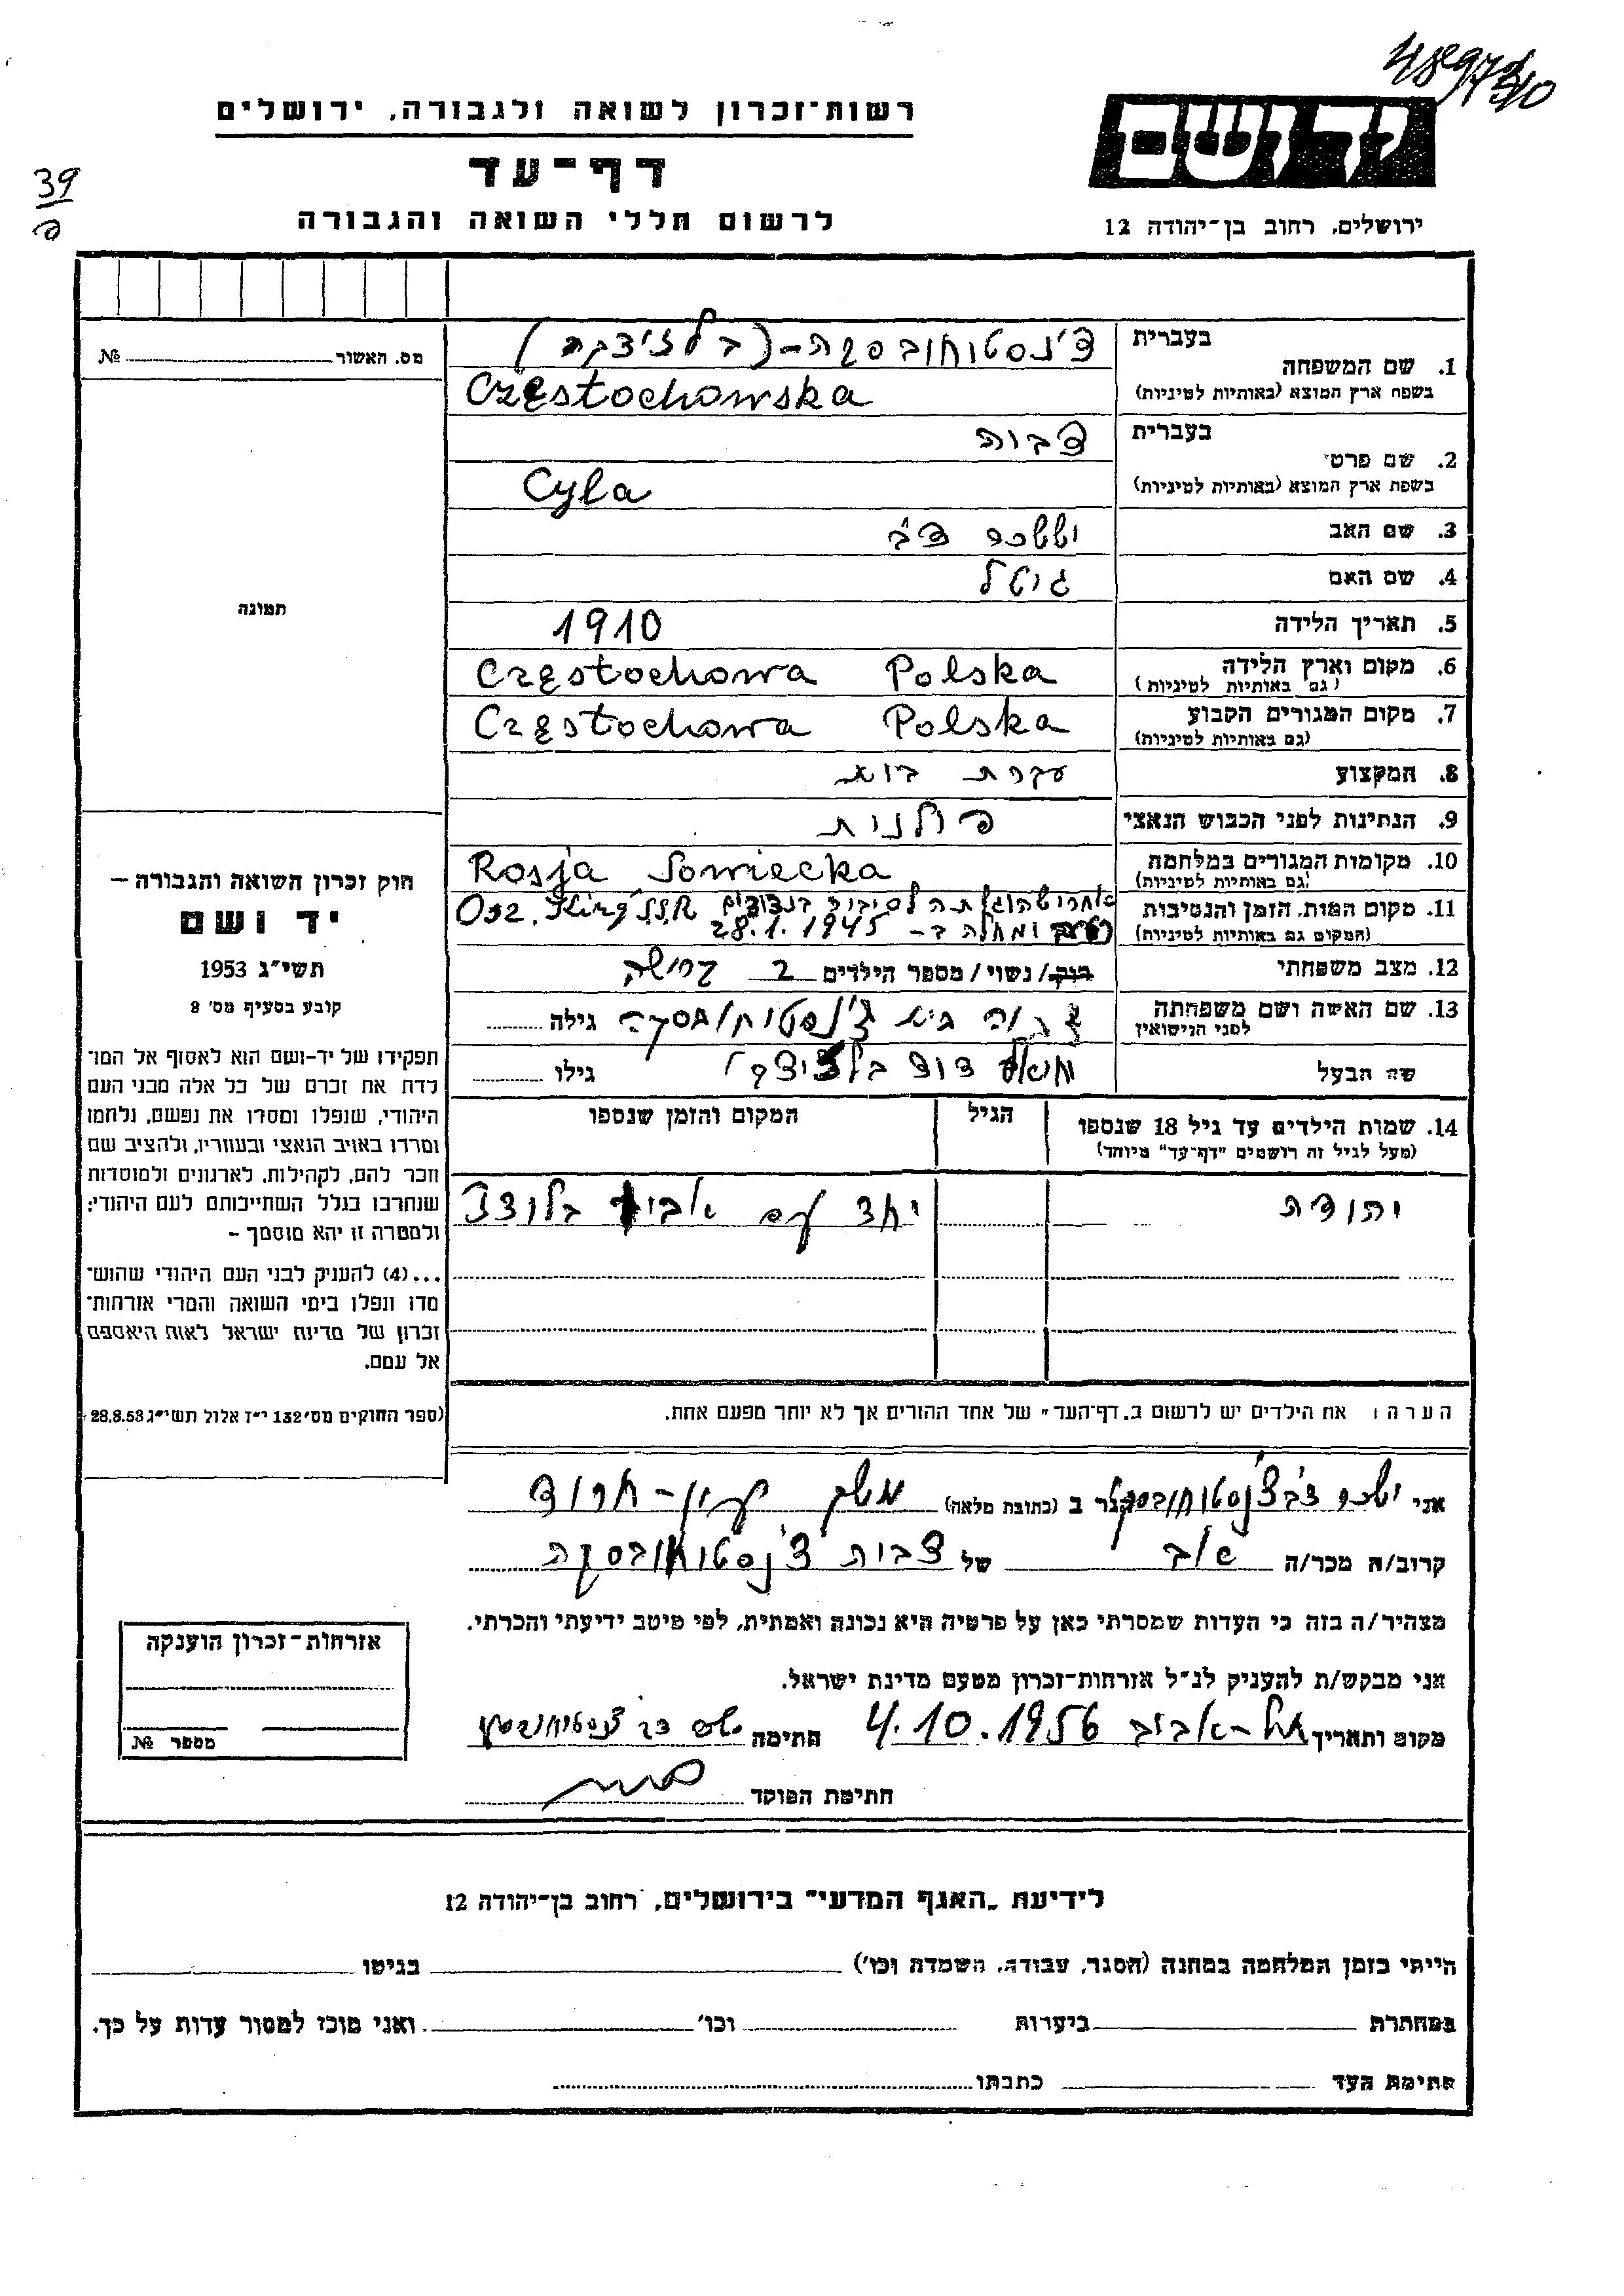 רשות־זכרון לשואה ולגבורה, ירושלים
דף־עד
לרשום חללי השואה והגבורה
ירושלים, רחוב בן־יהודה 12
39
מס. האשור № 
תמונה
1. שם המשפחה
בעברית
צ'נסטוחובסקה - (בלזיצקה)
בשפת ארץ המוצא (באותיות לטיניות)
Częstochowska
2. שם פרטי
בעברית
צביה
בשפת ארץ המוצא (באותיות לטיניות)
Cyla
3. שם האב יששכר צבי
4. שם האם גיטל
5. תאריך הלידה 1910
6. מקום וארץ הלידה (גם באותיות לטיניות) Częstochowa Polska
7. מקום המגורים הקבוע (גם באותיות לטיניות) Częstochowa Polska
8. המקצוע עקרת בית
9. הנתינות לפני הכבוש הנאצי פולנית
10. מקומות המגורים במלחמה (גם באותיות לטיניות) Rosja Sowiecka
11. מקום המות, הזמן והנסיבות (המקום גם באותיות לטיניות)
אחרי שהוגלתה לסיביר בנדודים
ומחלה ב- 28.1.1945
12. מצב משפחתי רוק/נשוי/מספר הילדים 2
13. שם האשה ושם משפחתה לפני הנישואין צביה בית צ'נסטוחובסקה גילה
שם הבעל דוד גילו
14. שמות הילדים עד גיל 18 שנספו (מעל לגיל זה רושמים "דף־עד" מיוחד)
הגיל
המקום והזמן שנספו
יהודית
יחד עם אביה בלודז
הערה: את הילדים יש לרשום ב„דף־העד" של אחד ההורים אך לא יותר מפעם אחת.
חוק זכרון השואה והגבורה –
יד ושם
תשי"ג 1953
קובע בסעיף מס' 8
תפקידו של יד-ושם הוא לאסוף אל המו־
לדת את זכרם של כל אלה מבני העם
היהודי, שנפלו ומסרו את נפשם, נלחמו
ומרדו באויב הנאצי ובעוזריו, ולהציב שם
וזכר להם, לקהילות, לארגונים ולמוסדות
שנחרבו בגלל השתייכותם לעם היהודי;
ולמטרה זו יהא מוסמך –
...(4) להעניק לבני העם היהודי שהוש־
מדו ונפלו בימי השואה והמרי אזרחות־
זכרון של מדינת ישראל לאות היאספם
אל עמם.
(ספר החוקים מס' 132 י"ז אלול תשי"ג 28.8.53)
אני יששכר צבי צ'נסטוחובסקי הגר ב (כתובת מלאה) משק עין-חרוד
קרוב/ה מכר/ה אב של צביה צ'נסטוחובסקה
מצהיר/ה בזה כי העדות שמסרתי כאן על פרטיה היא נכונה ואמתית, לפי מיטב ידיעתי והכרתי.
אני מבקש/ת להעניק לנ"ל אזרחות־זכרון מטעם מדינת ישראל.
מקום ותאריך תל-אביב 4.10.1956 חתימה
חתימת הפוקד
אזרחות־זכרון הוענקה
מספר №
לידיעת „האגף המדעי" בירושלים, רחוב בן־יהודה 12
הייתי בזמן המלחמה במחנה (הסגר, עבודה, השמדה וכו') בגיטו
במחתרת ביערות וכו' ואני מוכן למסור עדות על כך.
חתימת העד כתבתו